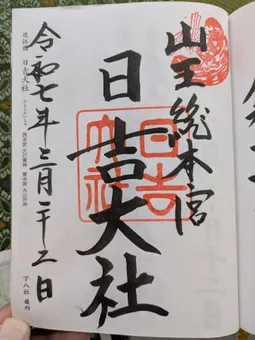 山王総本宮
日吉大社
日吉
大社
令和七年三月二十二日
近江國 日吉大社
西本宮 大己貴神 東本宮 大山咋神